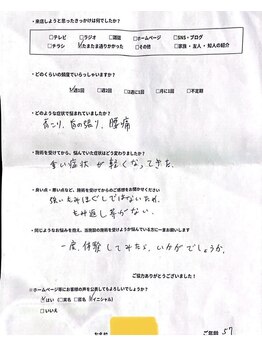 ・来店しようと思ったきっかけは何でしたか？
□テレビ □ラジオ □雑誌 □ホームページ □SNS・ブログ
□チラシ ☑たまたま通りかかった □その他 □家族・友人・知人の紹介
・どのくらいの頻度でいらっしゃいますか？
☑週1回 □週2回 □2週に1回 □月に1回 □不定期
・どのような症状で悩まれていましたか？
肩こり、首の張り、腰痛
・施術を受けてから、悩んでいた症状はどう変わりましたか？
全い症状が軽くなってきた。
・良い点・悪い点など、施術を受けてからのご感想をお聞かせください
強いもみほぐしではないため、
もみ返し等がない。
・同じようなお悩みを抱え、当施設の施術を受けようか悩んでいる方に一言お願いします
一度、体験してみたら、いかがでしょうか。
ご協力ありがとうございました！
※ホームページ等にお客様の声を公表してもよろしいでしょうか？
☑はい（□実名 □匿名 ☑イニシャル）
□いいえ
ご年齢 57